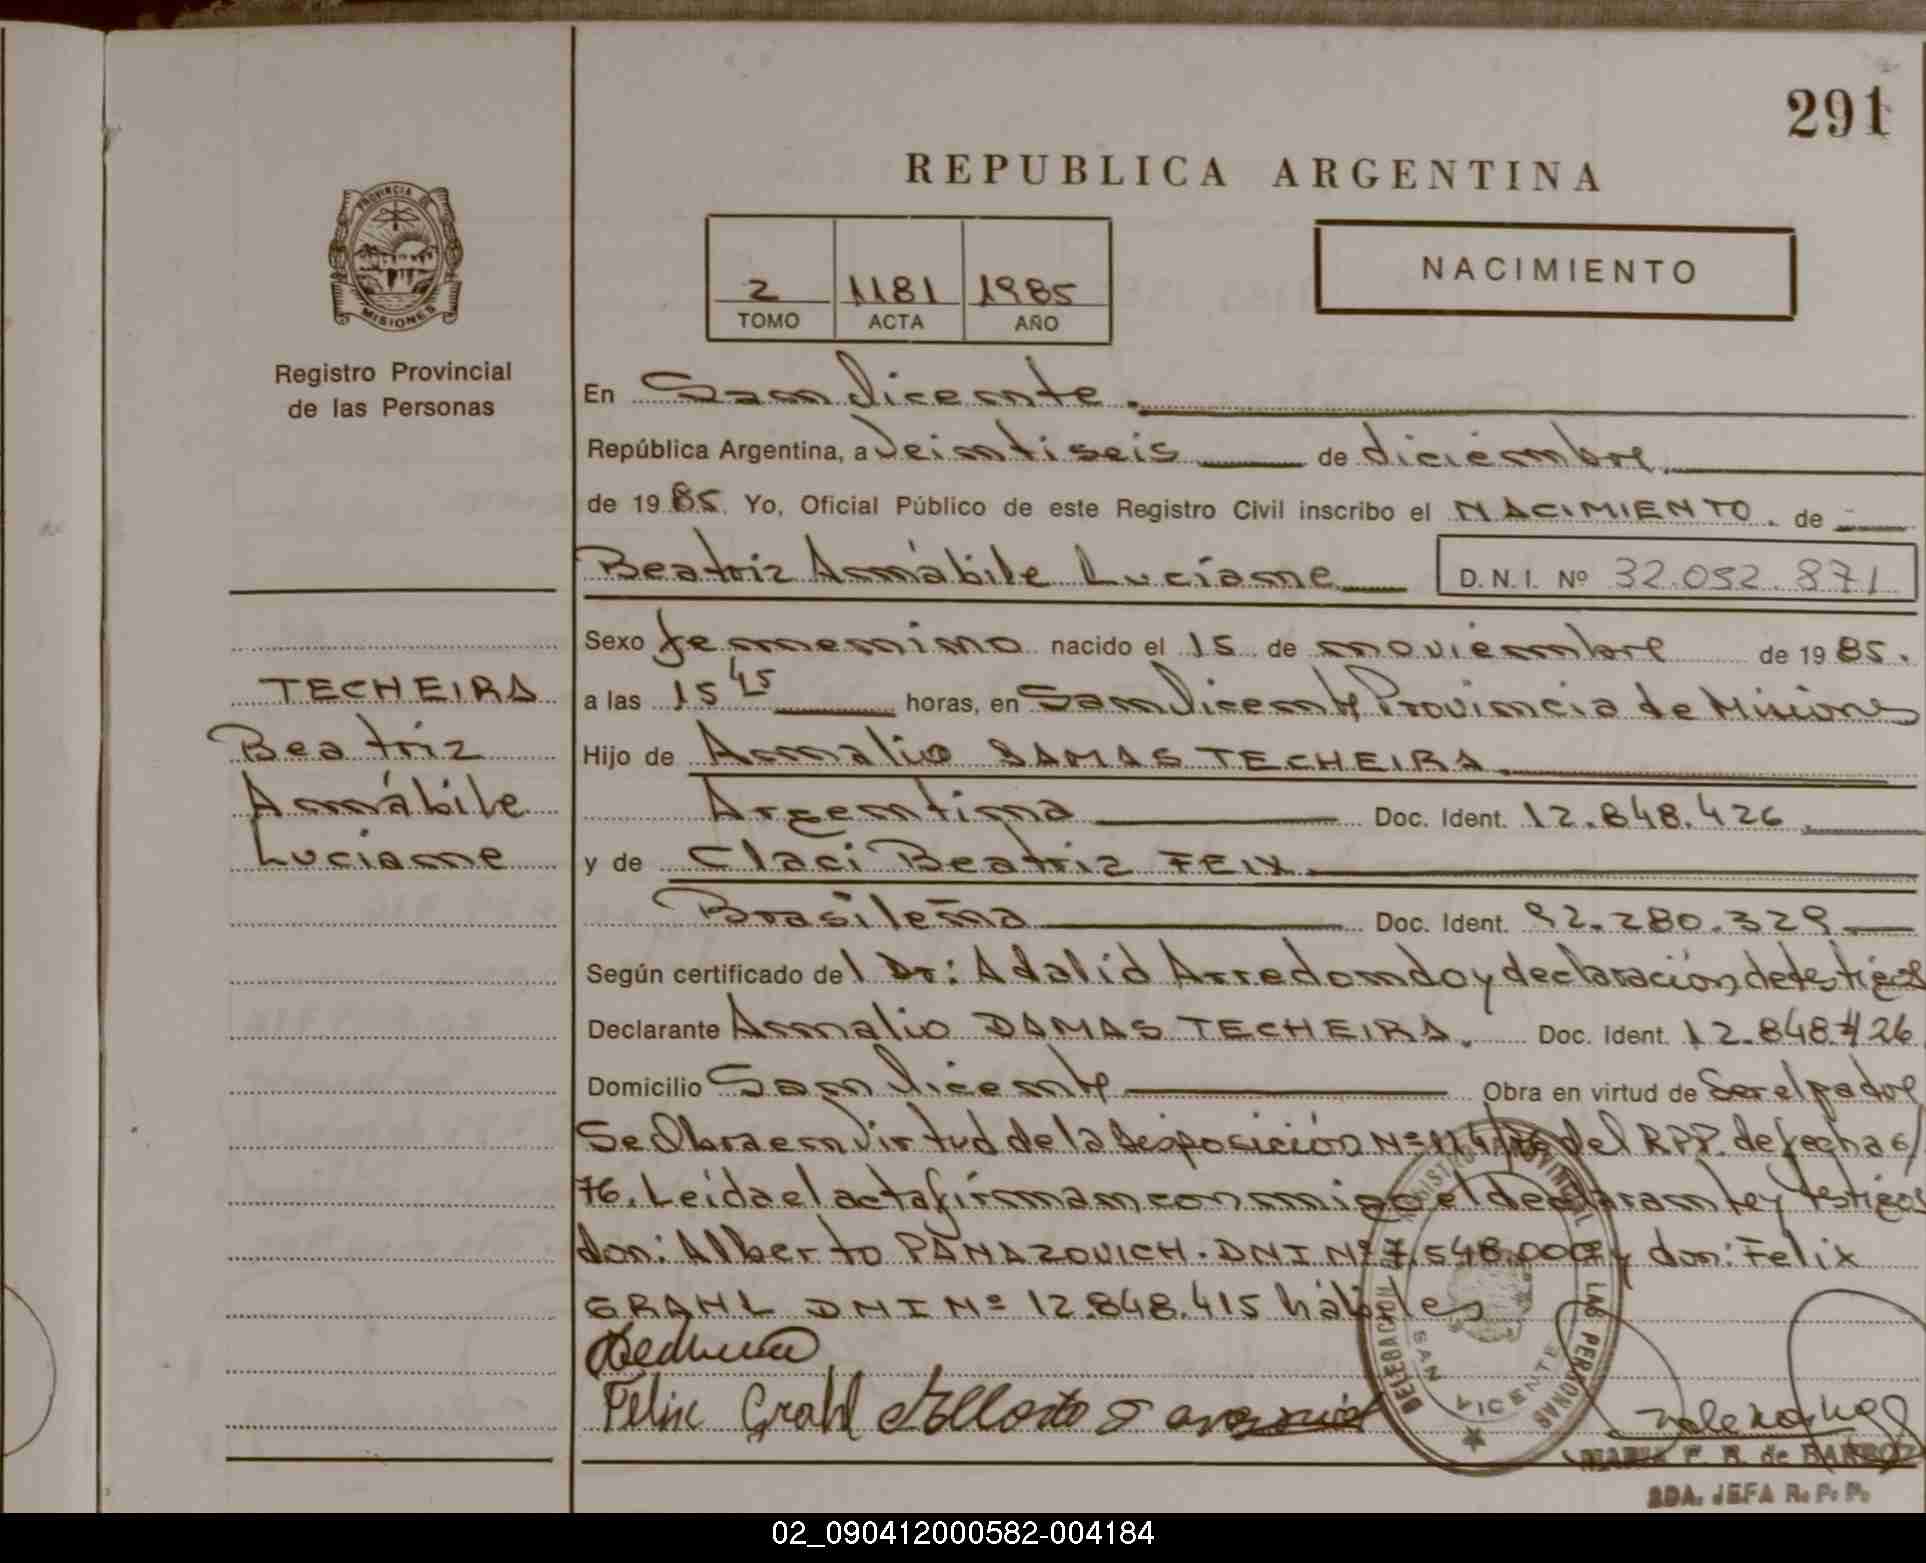 291
REPUBLICA ARGENTINA
PROVINCIA DE
MISIONES
2 1181 1985
TOMO ACTA AÑO
NACIMIENTO
Registro Provincial
de las Personas
En San Vicente.
República Argentina, a Veintiseis de diciembre
de 1985. Yo, Oficial Público de este Registro Civil inscribo el NACIMIENTO. de
Beatriz Annábile Luciane D.N.I. Nº 32.052.871
Sexo femenino nacido el 15 de noviembre de 1985.
TECHEIRA
a las 15 45 horas, en San Vicente Provincia de Misiones
Beatriz
Hijo de Annalio DAMAS TECHEIRA
Annábile
Argentina Doc. Ident. 12.848.426
Luciane
y de Claci Beatriz FEIX
Brasileña Doc. Ident. 92.280.329
Según certificado del Dr: Adalid Arredondo y declaración de testigos
Declarante Annalio DAMAS TECHEIRA. Doc. Ident. 12.848.426
Domicilio San Vicente Obra en virtud de Ser el padre
Se Obra en Virtud de la Disposición Nº del R.P.P. de fecha 6/
76. Leida el acta firman conmigo el declarante y testigos
don: Alberto PANAZOVICH. DNI Nº 7.548.000 y don: Felix
GRAHL DNI Nº 12.848.415 hábiles
Felix Grahl
DELEGACION REGISTRO PROVINCIAL DE LAS PERSONAS
SAN VICENTE
MARIA F. R. de BARROZ
SDA. JEFA R. P. P.
02_090412000582-004184